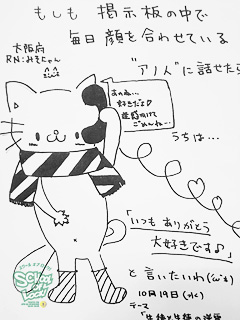 もしも 掲示板の中で
毎日 顔を合わせている
大阪府
RN:みそにゃん
"アノ人"に話せたら
あのね…
好きだよ♪
ごめんね…
うちは…
「いつも ありがとう
大好きです♪」
と言いたいわ(ω)
10月19日(水)
テーマ